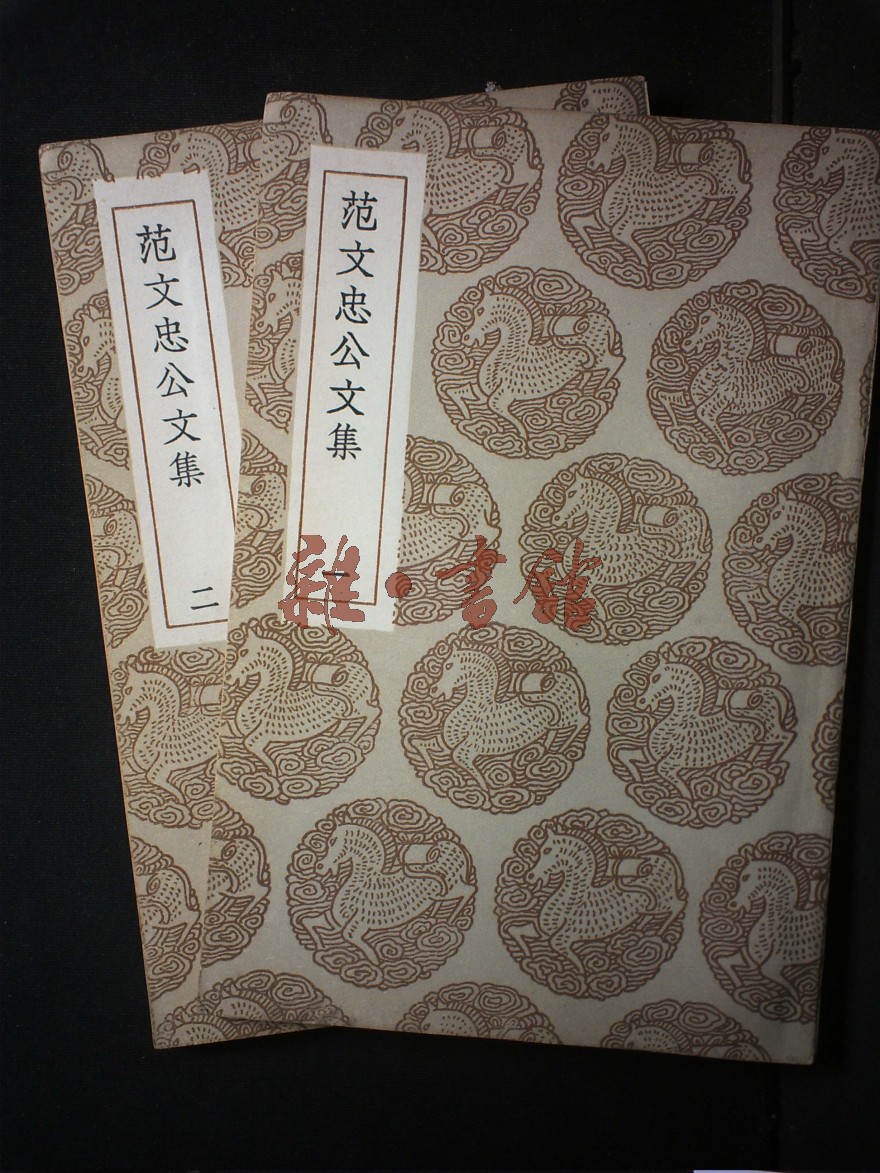 范文忠公文集
一
范文忠公文集
二
雜·書館